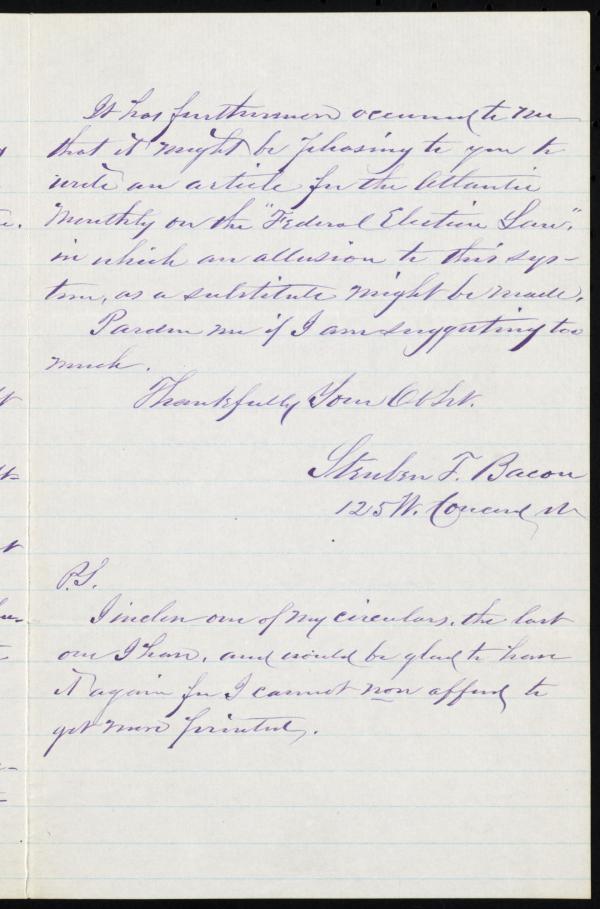 It has furthermore occurred to me
that it might be pleasing to you to
write an article for the Atlantic
Monthly on the "Federal Election Law",
in which an allusion to this sys-
tem, as a substitute might be made.
Pardon me if I am suggesting too
much.
Thankfully Your Obt Svt.
Steuben T. Bacon
125 W. Concord St
P.S.
I inclose one of my circulars, the last
one I have, and would be glad to have
it again for I cannot now afford to
get more printed.